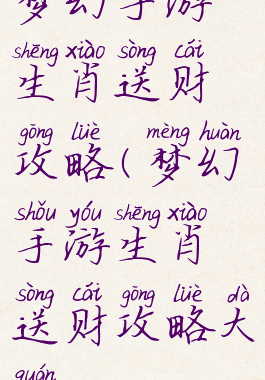 梦幻手游
shēng xiào sòng cái
生肖送财
gōng lüè mèng huàn
攻略(梦幻
shǒu yóu shēng xiào
手游生肖
sòng cái gōng lüè dà
送财攻略大
quán